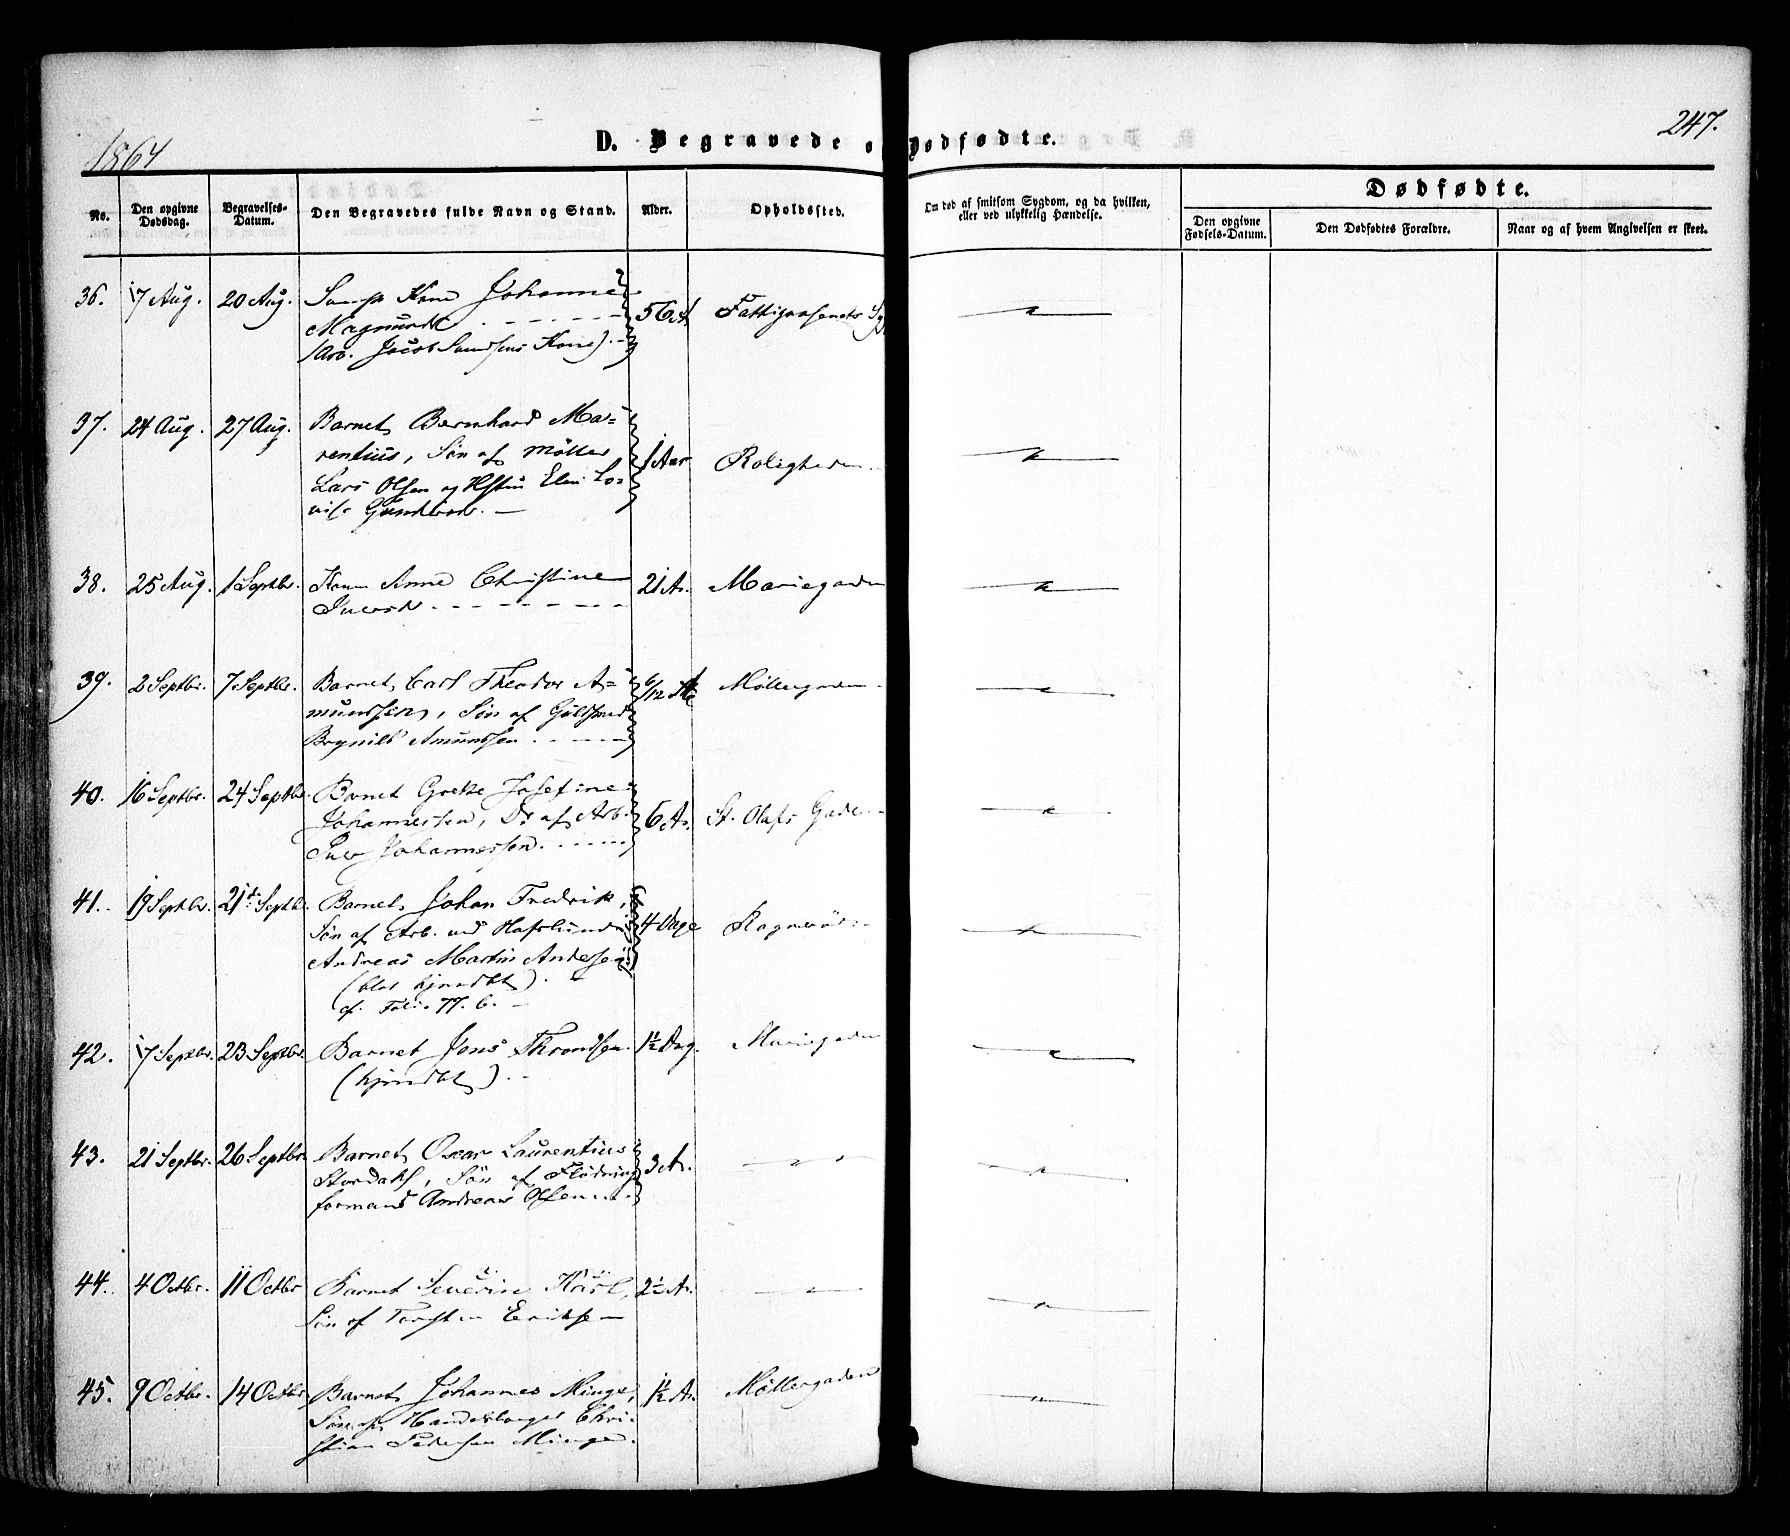 1864
D. Begravede o Dødfødte.
247.
No.
Den opgivne Dødsdag.
Begravelses-Datum.
Den Begravedes fulde Navn og Stand.
Alder.
Opholdssted.
Om død af smitsom Sygdom, og da hvilken, eller ved ulykkelig Hændelse.
Dødfødte.
Den opgivne Fødsels-Datum.
Den Dødfødtes Forældre.
Naar og af hvem Angivelsen er skeet.
36. 17 Aug. 20 Aug. Kone Johanne 56 A
Magnusdt.
(Arb. Jacob Kone).
37. 24 Aug. 27 Aug. Barnet Bernhard Ma=
rentius, Søn af Møller 1 Aar Roligheden
Lars Olsen og Hstru Elen Lo=
vise
38. 25 Aug. 1 Septbr. Kone Anne Christine 21 A. Mariegaden
Iversdt
39. 2 Septbr. 7 Septbr. Barnet Carl Theodor A= 6/12 Møllergaden
mundsen, Søn af Guldsmed
Brynild Amundsen
40. 16 Septbr. 24 Septbr. Barnet Grethe Josefine
Johannessen, Dr. af Arb. 6 A. St. Olafs Gade
Iver Johannessen.
41. 19 Septbr. 21de Septbr. Barnet Johan Fredrik,
Søn af Arb. ved Hafslund 4 Dage
Andreas Martin Andersen
(blot hjemdbt).
cf. Folio 77. 6.
42. 17 Septbr. 23 Septbr. Barnet Jens Throndsen 1½ Dag. Mariegaden
(hjemdbt).
43. 21 Septbr. 26 Septbr. Barnet Oscar Laurentius
Søn af Flødnings 3 A.
formand Andreas Olsen
44. 4 Octbr. 11 Octbr Barnet Severin Karl, 2½ A.
Søn af Torsten Eriksen
45. 9 Octbr. 14 Octbr Barnet Johannes Minge, 1½ A. Møllergaden
Søn af Handelsborger Chri=
stian Pedersen Minge.